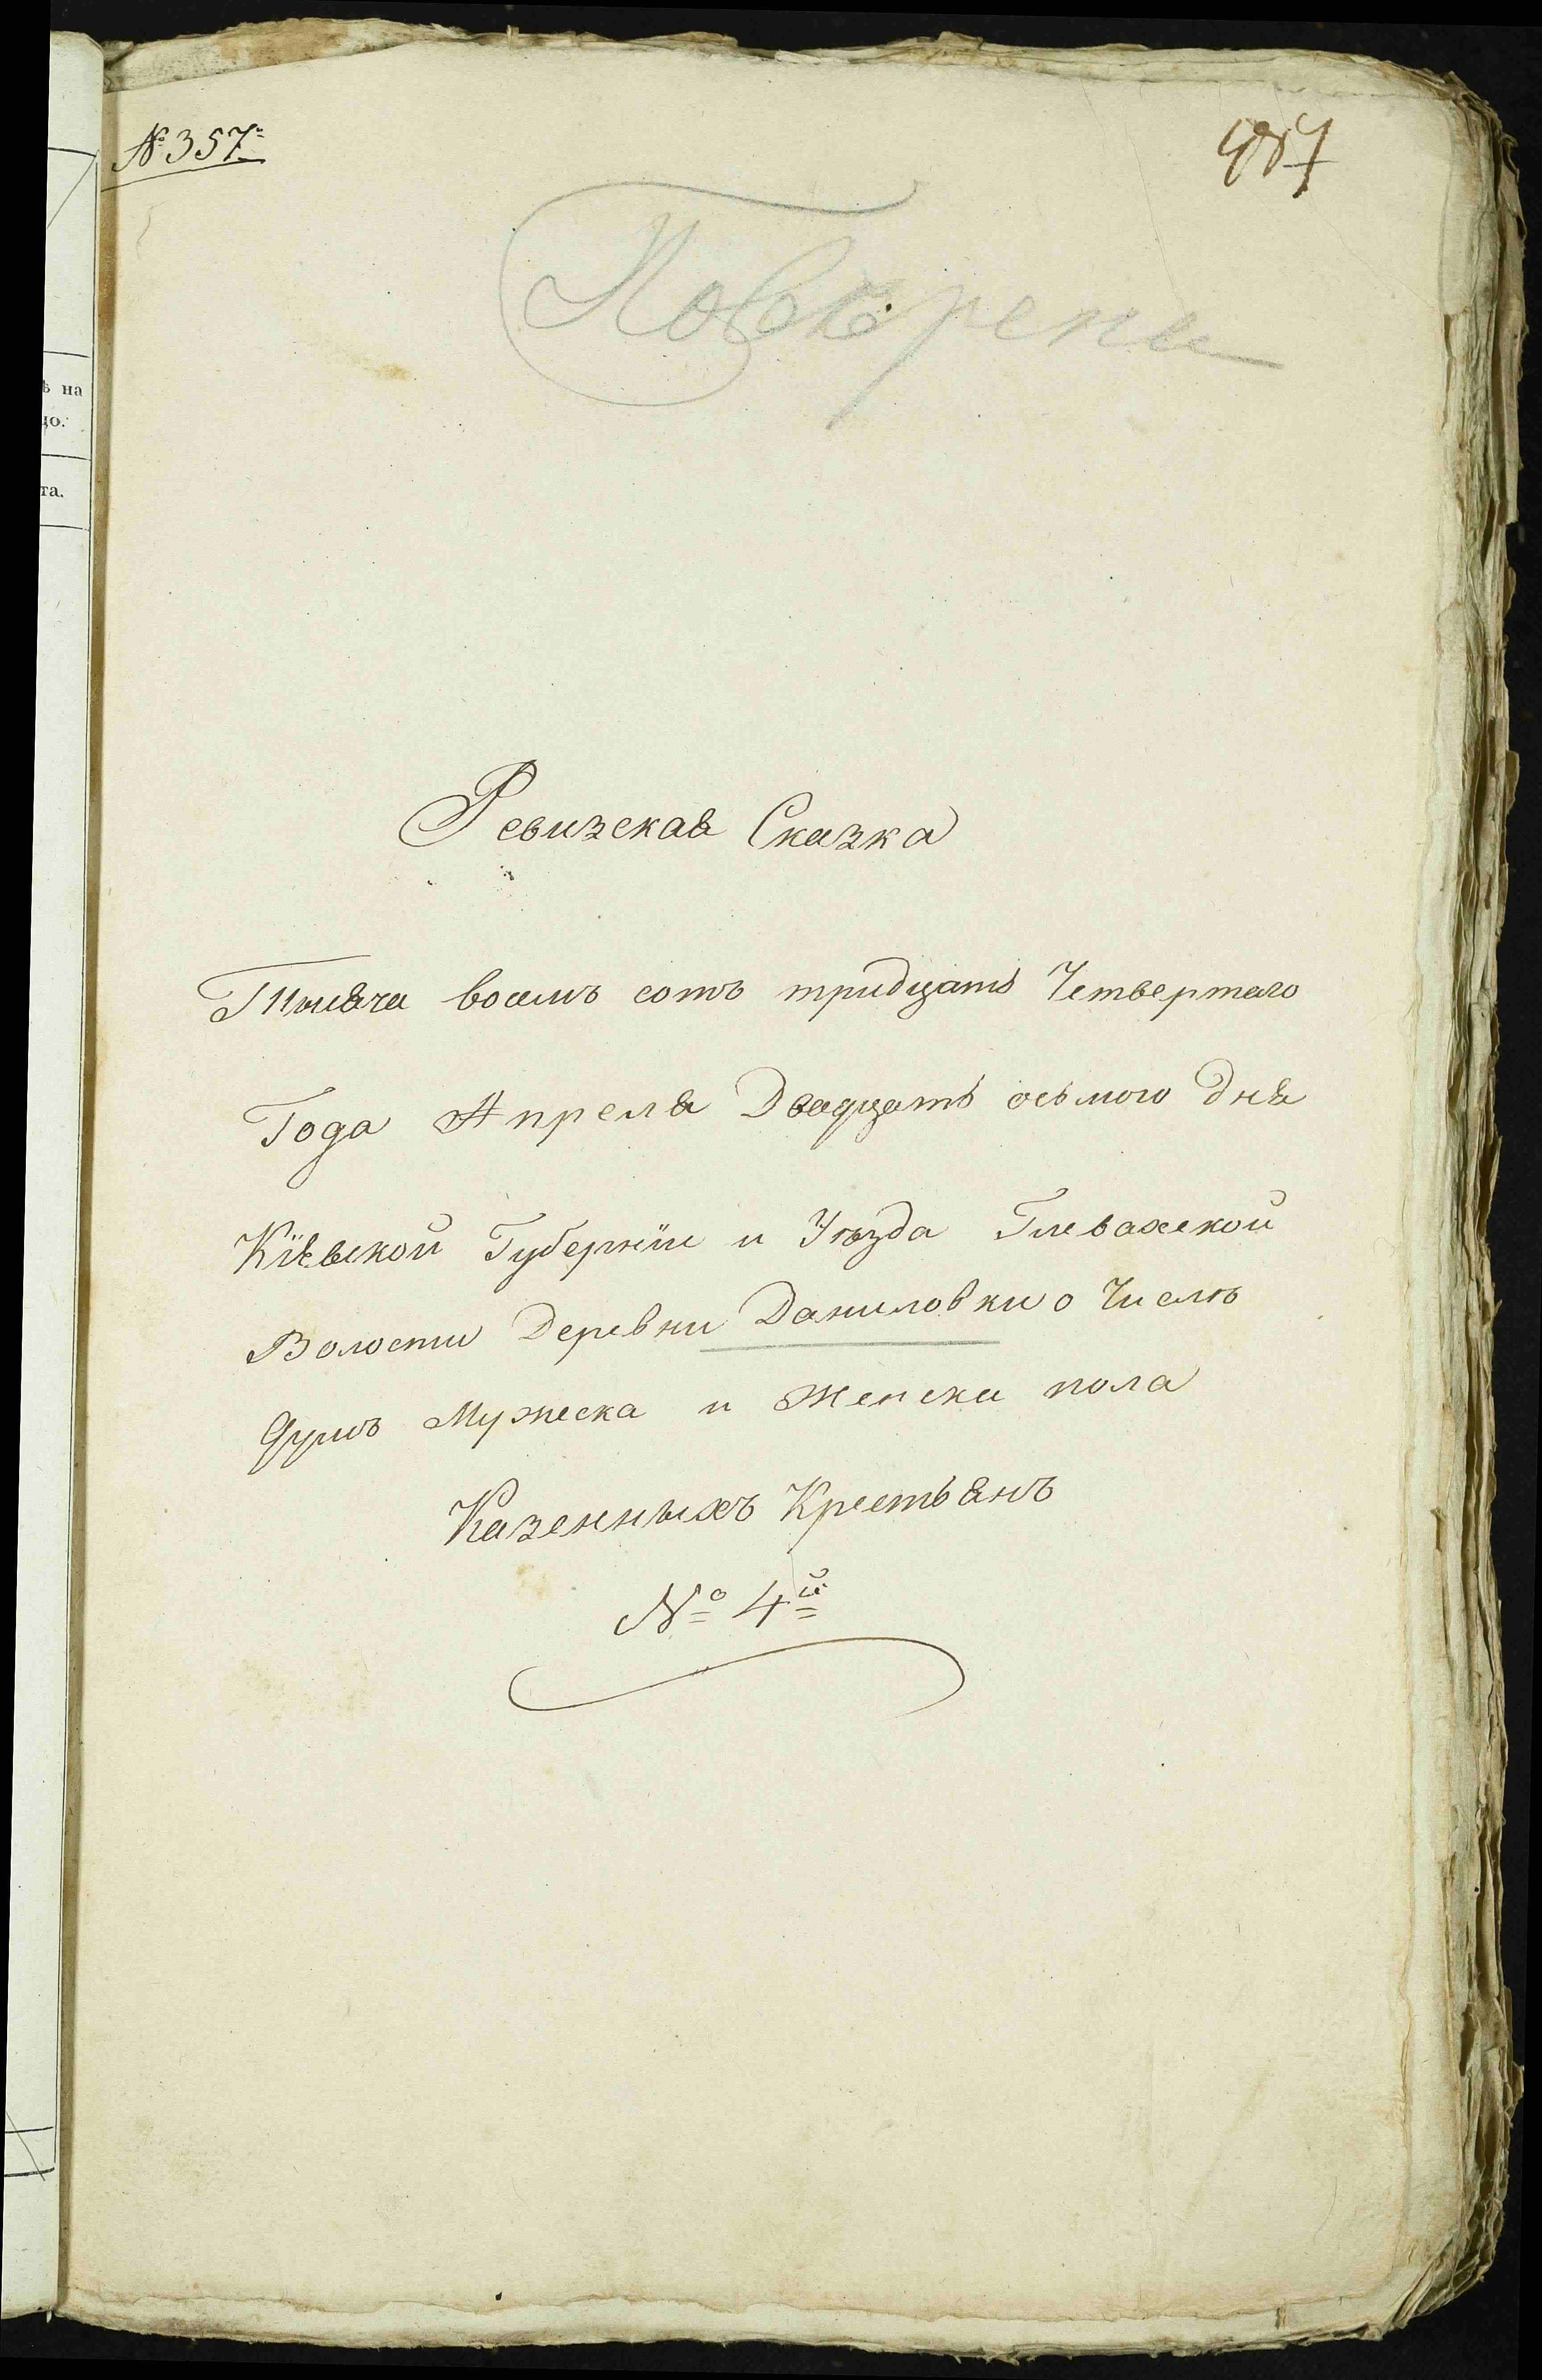 № 357.
487
Повѣрены
ѣ на
цо.
та.
Ревизская Сказка
Тысяча восемь сотъ тридцать Четвертаго
Года Апреля Двадцать осьмого Дня
Кіевской Губерніи и Уѣзда Глевахской
Волости Деревни Даниловки о Числѣ
Душъ Мужеска и Женска пола
Казенныхъ Крестьянъ
№ 4й